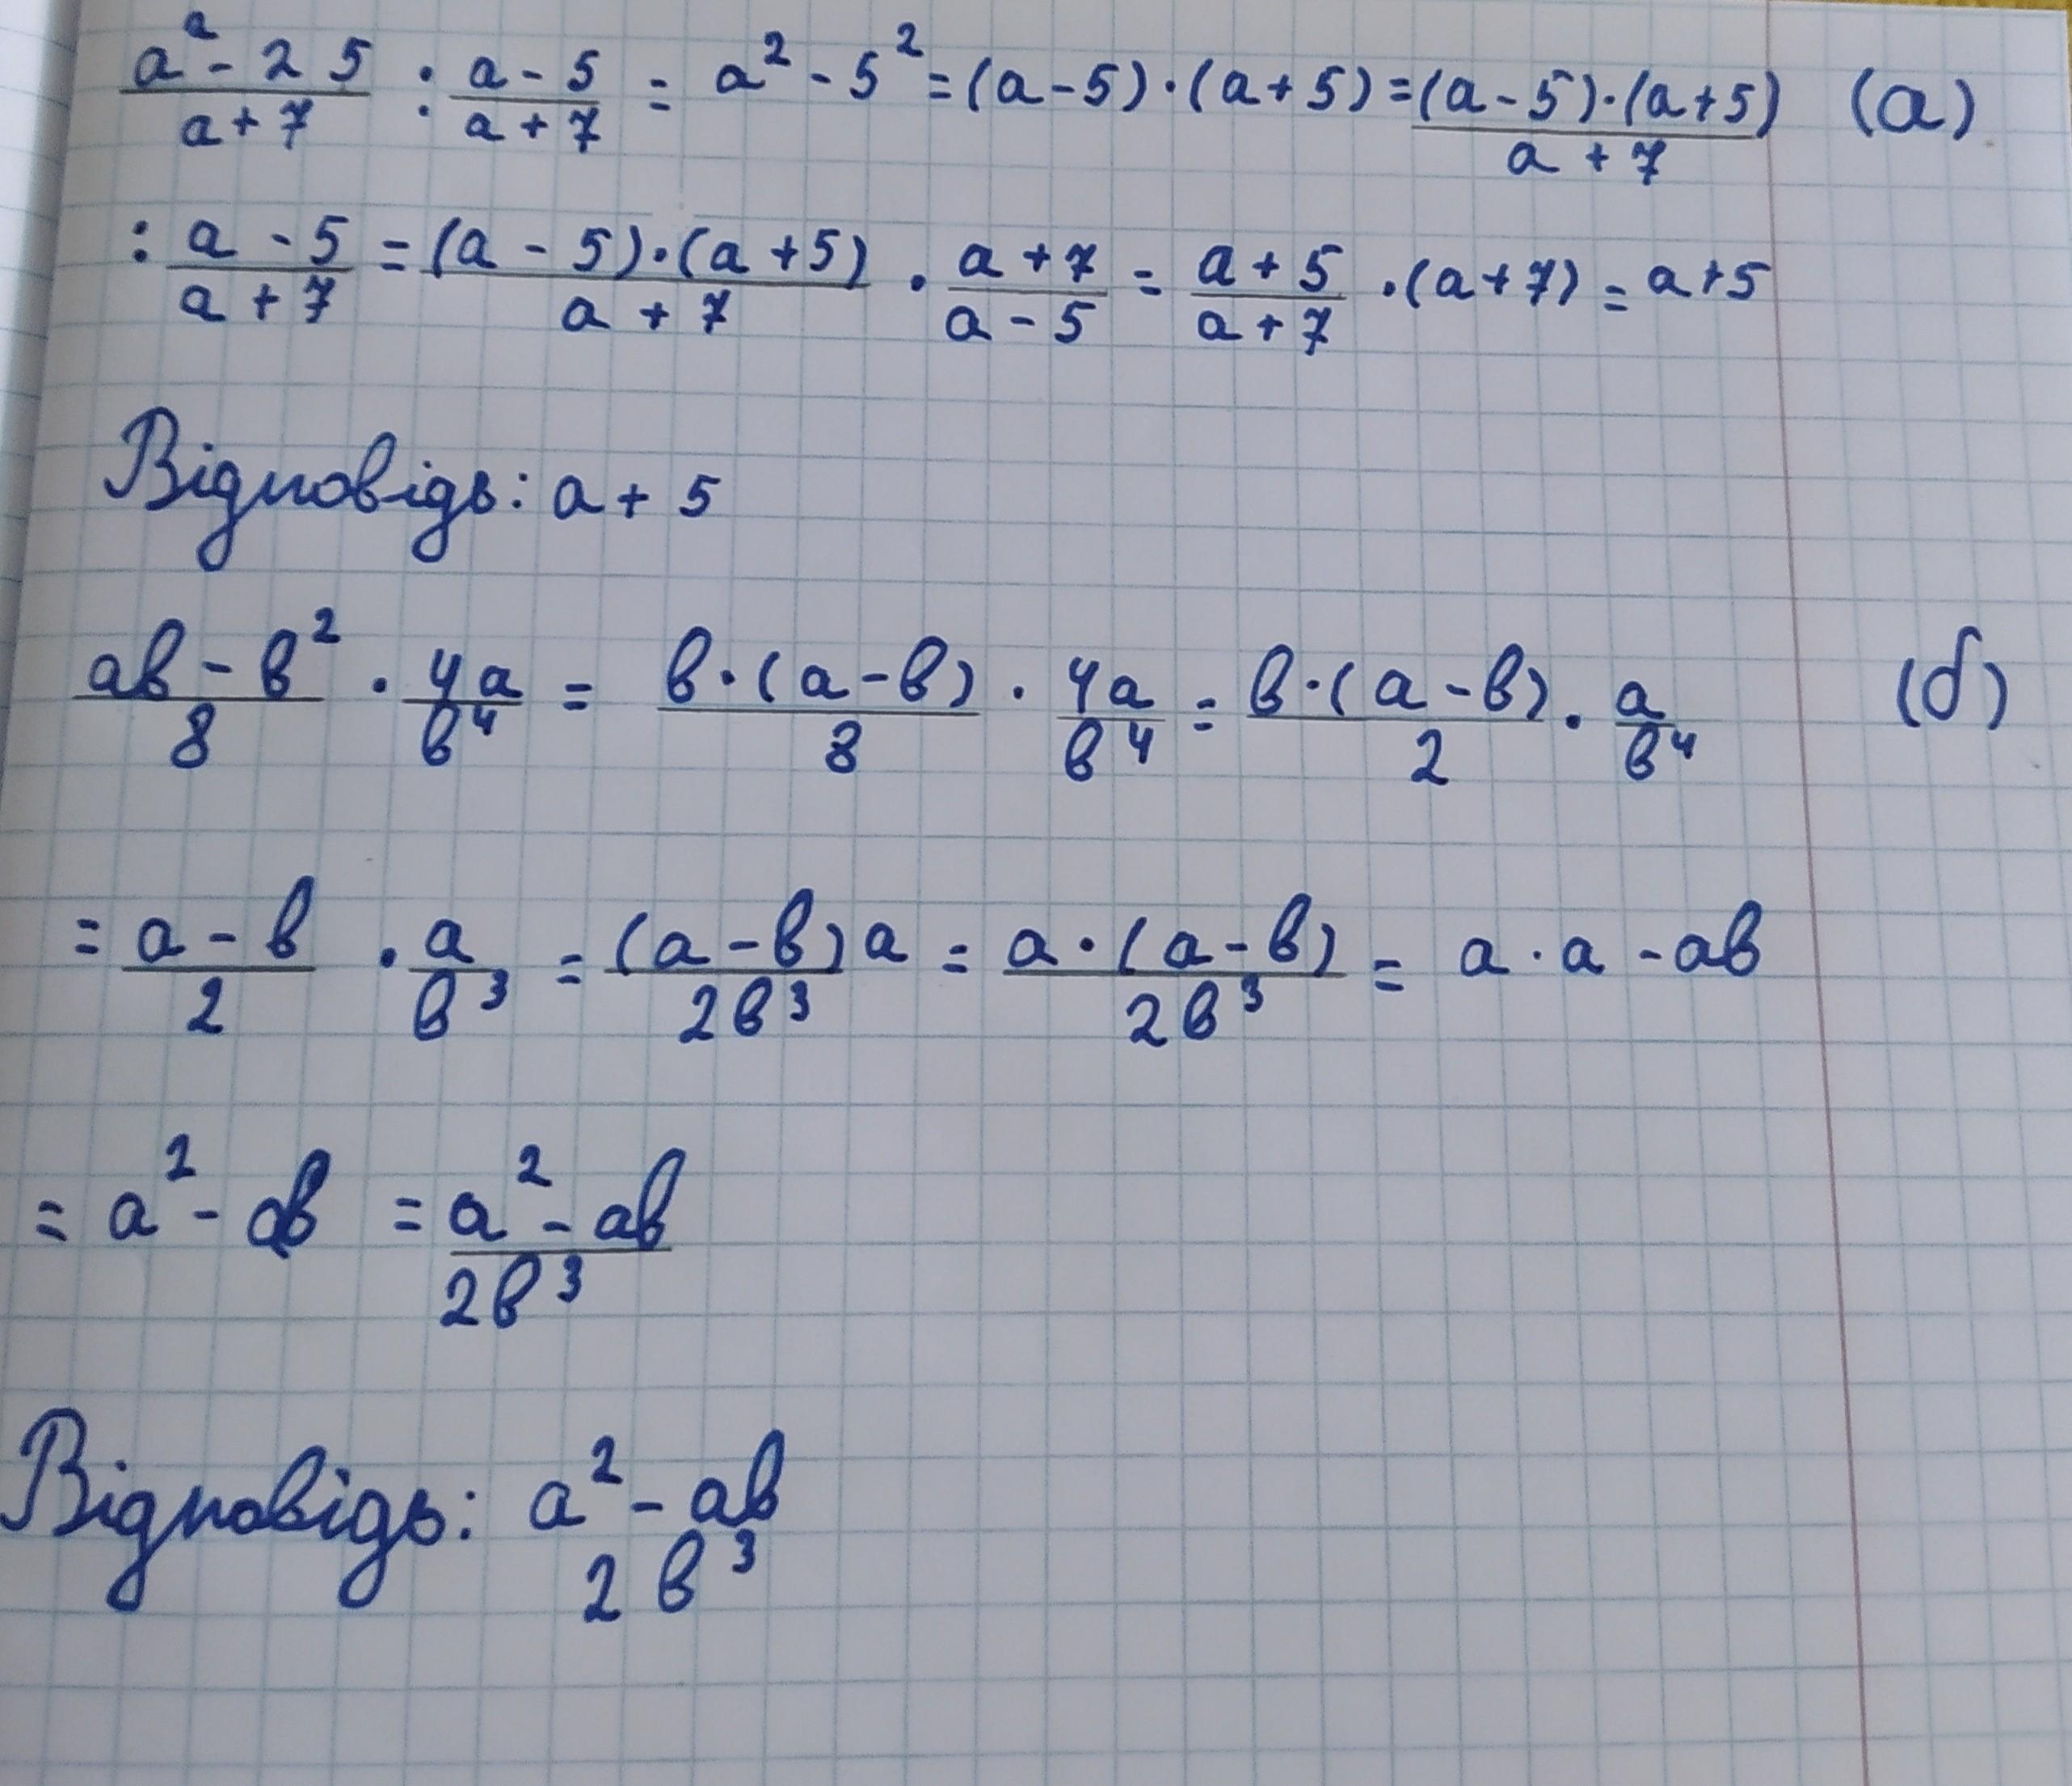 (a²-25)/(a+7) : (a-5)/(a+7) = a²-5² = (a-5)·(a+5) = ((a-5)·(a+5))/(a+7) (а)
: (a-5)/(a+7) = ((a-5)·(a+5))/(a+7) · (a+7)/(a-5) = (a+5)/(a+7) ·(a+7) = a+5
Відповідь: a+5
(ab-b²)/8 · 4a/b⁴ = (b·(a-b))/8 · 4a/b⁴ = (b·(a-b))/2 · a/b⁴ (б)
= (a-b)/2 · a/b³ = ((a-b)a)/(2b³) = (a·(a-b))/(2b³) = a·a-ab
= a²-ab = (a²-ab)/(2b³)
Відповідь: a²-ab
2b³